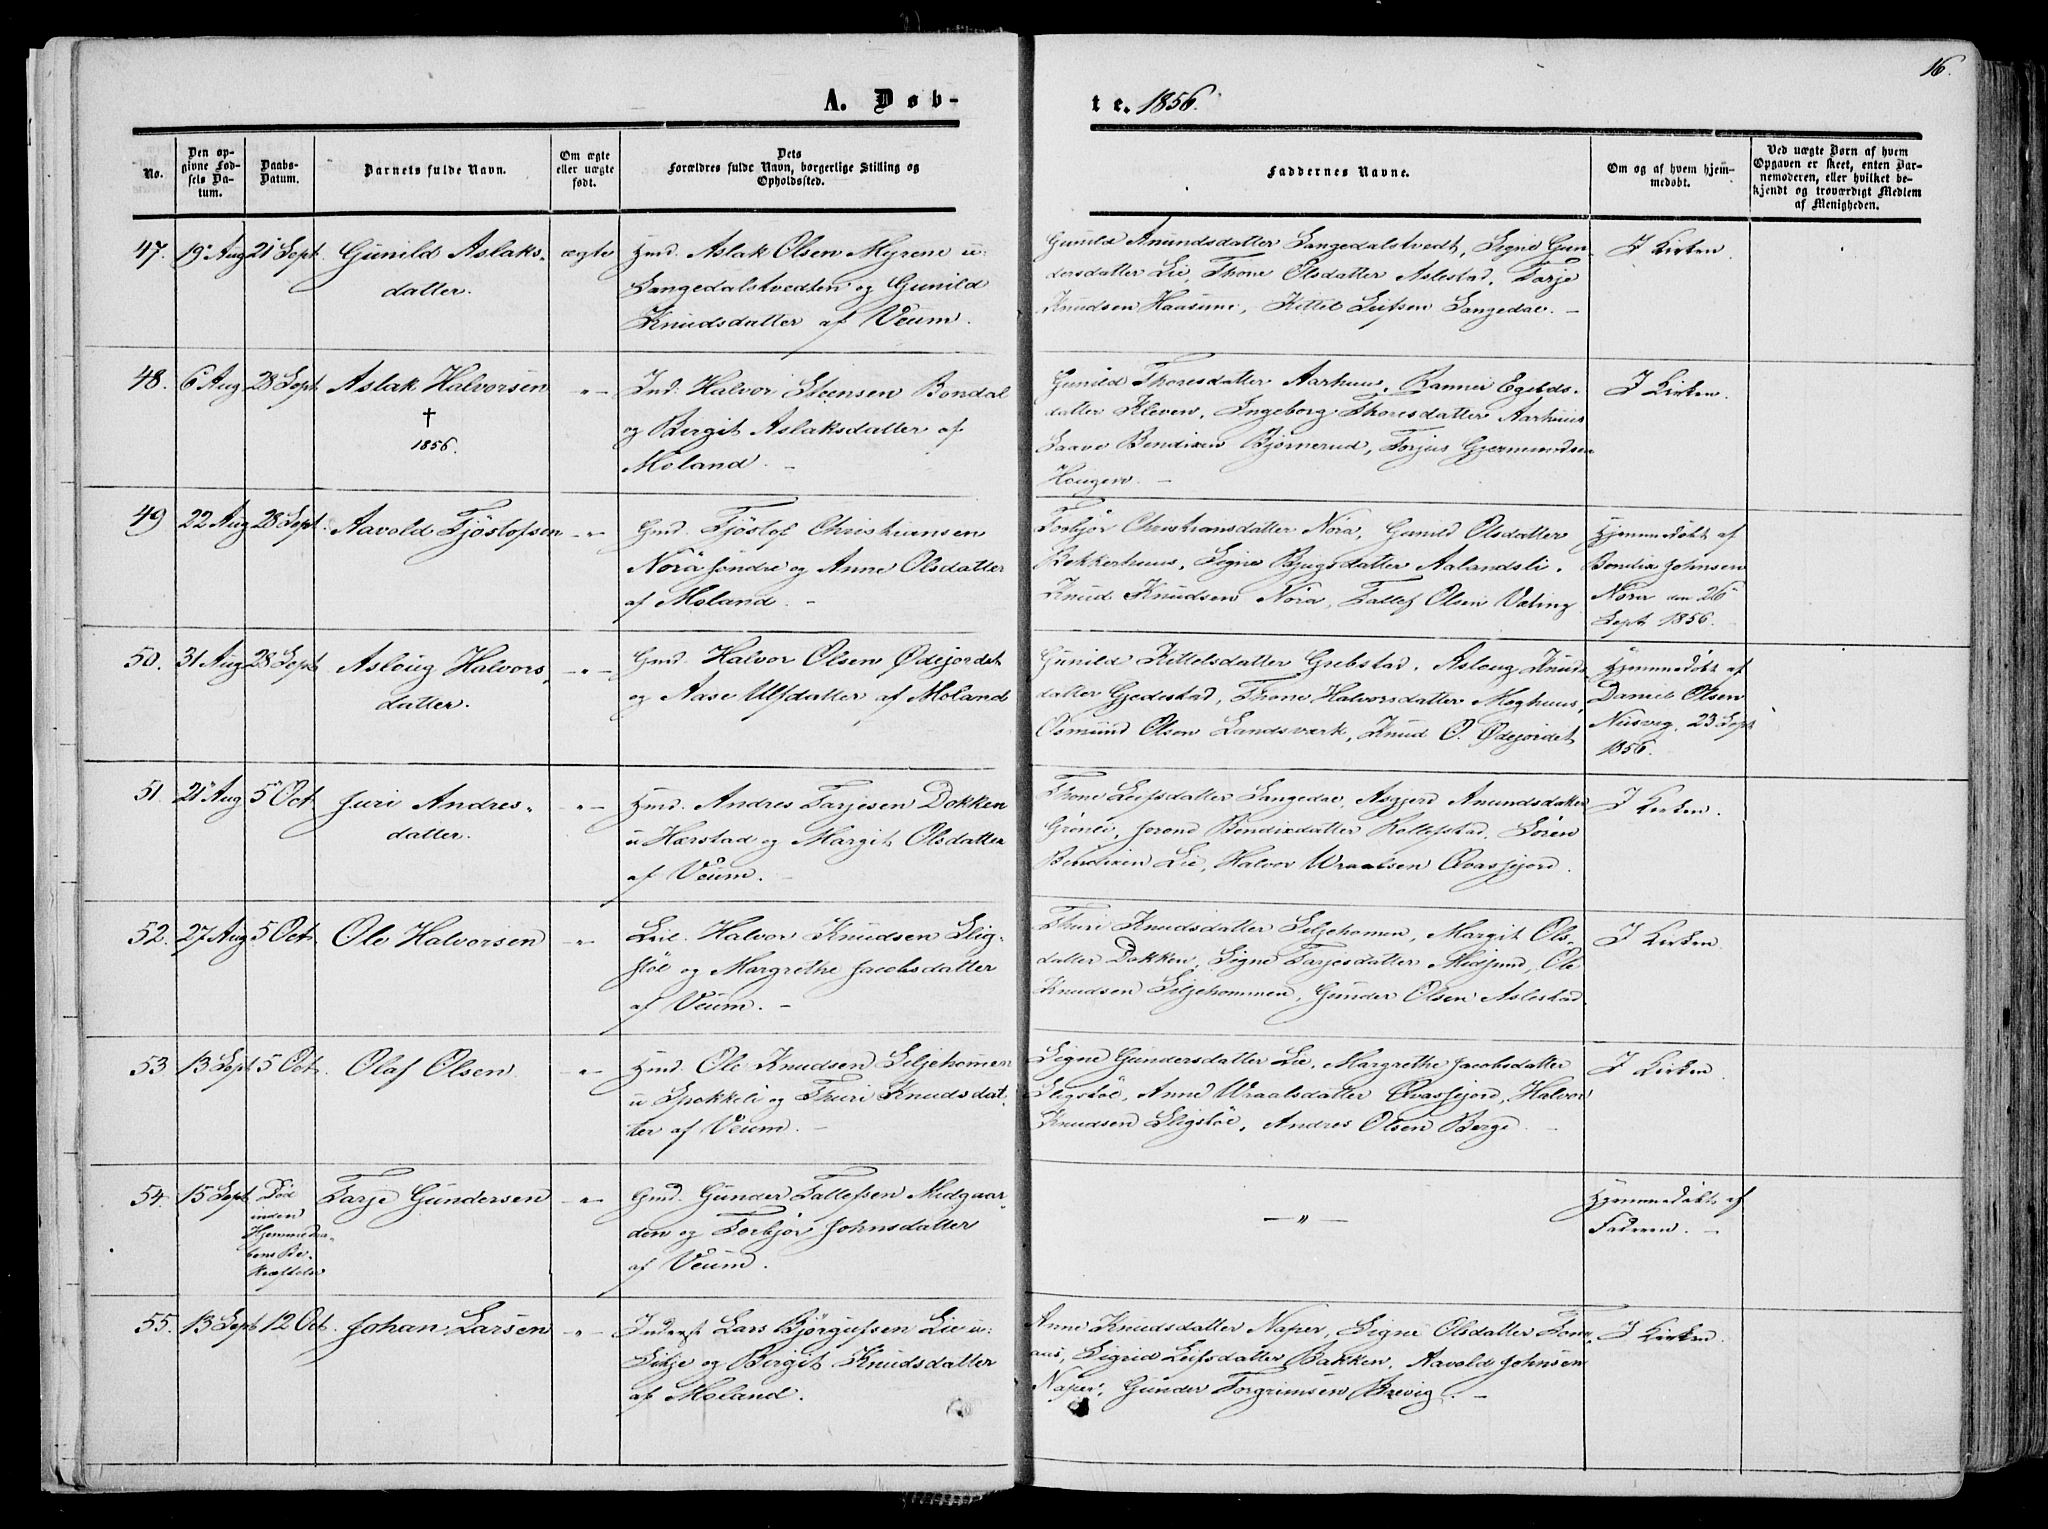 16.
A. Døb-
te. 1856.
No.
Den op-
givne Fød-
sels Da-
tum.
Daabs-
Datum.
Barnets fulde Navn.
Om ægte
eller uægte
født.
Dets
Forældres fulde Navn, borgerlige Stilling og
Opholdssted.
Faddernes Navne.
Om og af hvem hjem-
medøbt.
Ved uægte Børn af hvem
Opgaven er skeet, enten Bar-
nemoderen, eller hvilket be-
kjendt og troværdigt Medlem
af Menigheden.
47. 19 Aug 21 Sept. Gunild Aslaks- ægte Hmd. Aslak Olsen Myrene u:
datter. Langedalstvedten og Gunild
Knudsdatter af Veum.
Gunild Anundsdatter Langedalstvedt, Signe Gun-
dersdatter Lie, Thone Olsdatter Aslestad, Tarje
Knudsen Haasune, Kittil Leifsen Langedal. —
I Kirken.
48. 6 Aug 28 Sept. Aslak Halvorsen -"- Ind. Halvor Steensen Bondal
† og Bergit Aslaksdatter af
1856. Moland. —
Gunild Thoresdatter Aarhuus, Rannei Egilds-
datter Kleven, Ingeborg Thoresdatter Aarhuus
Saave Bendixen Bjørnerud, Torjus Gjermundsen
Haugen. —
I Kirken.
49 22 Aug 28 Sept. Aavold Tjöstofsen -"- Gmd. Tjöstof Christiansen
Nörå söndre og Anne Olsdatter
af Moland. —
Torbjör Christiansdatter Nora, Gunild Olsdatter
Bakkerhuus, Signe Bjugsdatter Aalandsli,
Knud Knudsen Nora, Tallef Olsen Vating
Hjemmedøbt af
Bendix Johnsen
Nora den 26
Sept 1856.
50. 31 Aug 28 Sept Aslaug Halvors- -"- Gmd. Halvor Olsen Ødejordet
datter. og Aase Ulfsdatter af Moland
Gunild Kittelsdatter Grebstad, Aslaug Knuds-
datter Gjedestad, Thone Halvorsdatter Moghuus,
Osmund Olsen Landsværk, Knud O. Ødejordet
Hjemmedøbt af
Daniel Olsen
Nesveg, 23 Sept
1856.
51. 21 Aug 5 Oct Juri Andres- -"- Hmd. Andres Tarjesen Dokken
datter. u Harstad og Margit Olsdatter
af Veum. —
Thone Leifsdatter Langedal, Asgjerd Anundsdatter
Grönli, Jorond Bendixdatter Kollefstad, Sören
Bendixen Lie, Halvor Wraalsen Qvassjord.
I Kirken.
52. 27 Aug 5 Oct. Ole Halvorsen -"- Leil. Halvor Knudsen Slig-
stöl og Margrethe Jacobsdatter
af Veum. —
Thuri Knudsdatter Siljehomen, Margit Ols-
datter Dokken, Signe Tarjesdatter Midsund, Ole
Knudsen Siljehommen, Gunder Olsen Aslestad.
I Kirken
53 13 Sept 5 Oct. Olaf Olsen -"- Hmd. Ole Knudsen Siljehomen
u Spokkeli og Thuri Knudsdat-
ter af Veum. —
Signe Gundersdatter Lie, Margrethe Jacobsdatter
Sligstöl, Anne Wraalsdatter Qvassjord, Halvor
Knudsen Sligstöl, Andres Olsen Berge. —
I Kirken.
54. 15 Sept Död Tarje Gundersen -"- Gmd. Gunder Tallefsen Midgaar-
inden den og Torbjör Johnsdatter
Hjemmedaa- af Veum.
bens Be-
kræftelse
— " —
Hjemmedøbt af
Faderen. —
55. 13 Sept 12 Oct. Johan Larsen -"- Inderst Lars Björgufsen Lie u:
Silje og Bergit Knudsdatter
af Moland.
Anne Knudsdatter Naper, Signe Olsdatter Ton-
aas, Sigrid Leifsdatter Bakken, Aavold Johnsen
Naper, Gunder Torgrimsen Brevig. —
I Kirken